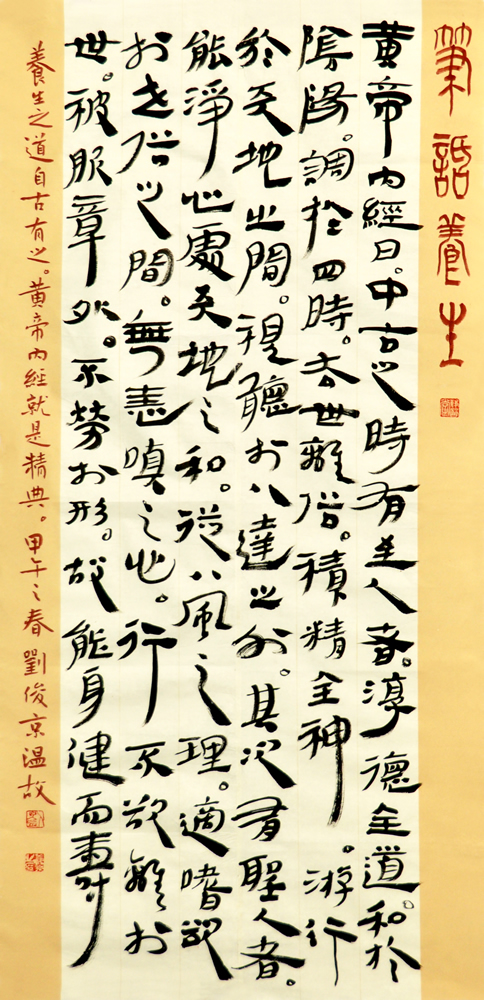 筆話養生
黄帝内經曰。中古之時有至人者。淳德全道。和於
陰陽。調於四時。去世離俗。積精全神。游行
於天地之間。視聽於八達之外。其次有聖人者。
能淨心處天地之和。從八風之理。適嗜欲
於世俗之間。無恚嗔之心。行不欲離於
世。被服章外。不勞於形。故能身健而壽
養生之道自古有之。黄帝内經就是精典。甲午之春劉俊京温故